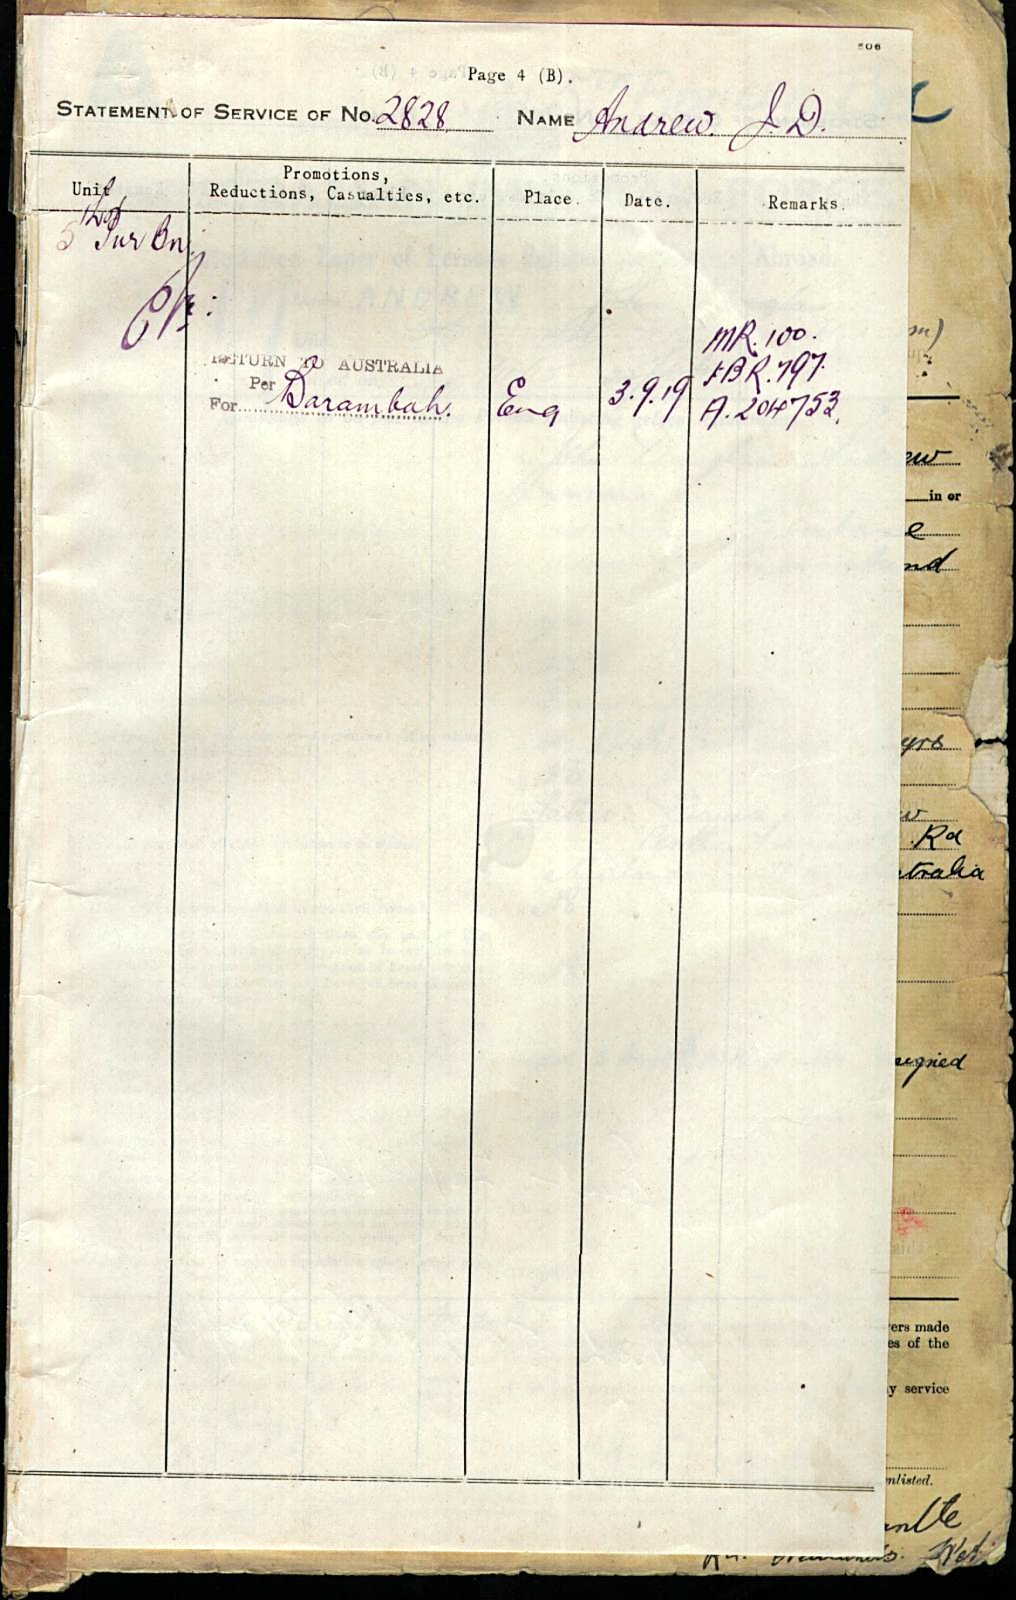 506
Page 4 (B).
STATEMENT OF SERVICE OF No. 2828 NAME Andrew. J. D.
Unit
Promotions, Reductions, Casualties, etc.
Place.
Date.
Remarks.
5 Bn
RETURN TO AUSTRALIA
Per Barambah.
For
Eng
3.9.19
MR. 100.
BR. 797.
A. 204753.
ew
in or
e
nd
yrs
w
Rd
tralia
signed
ers made
es of the
y service
nlisted.